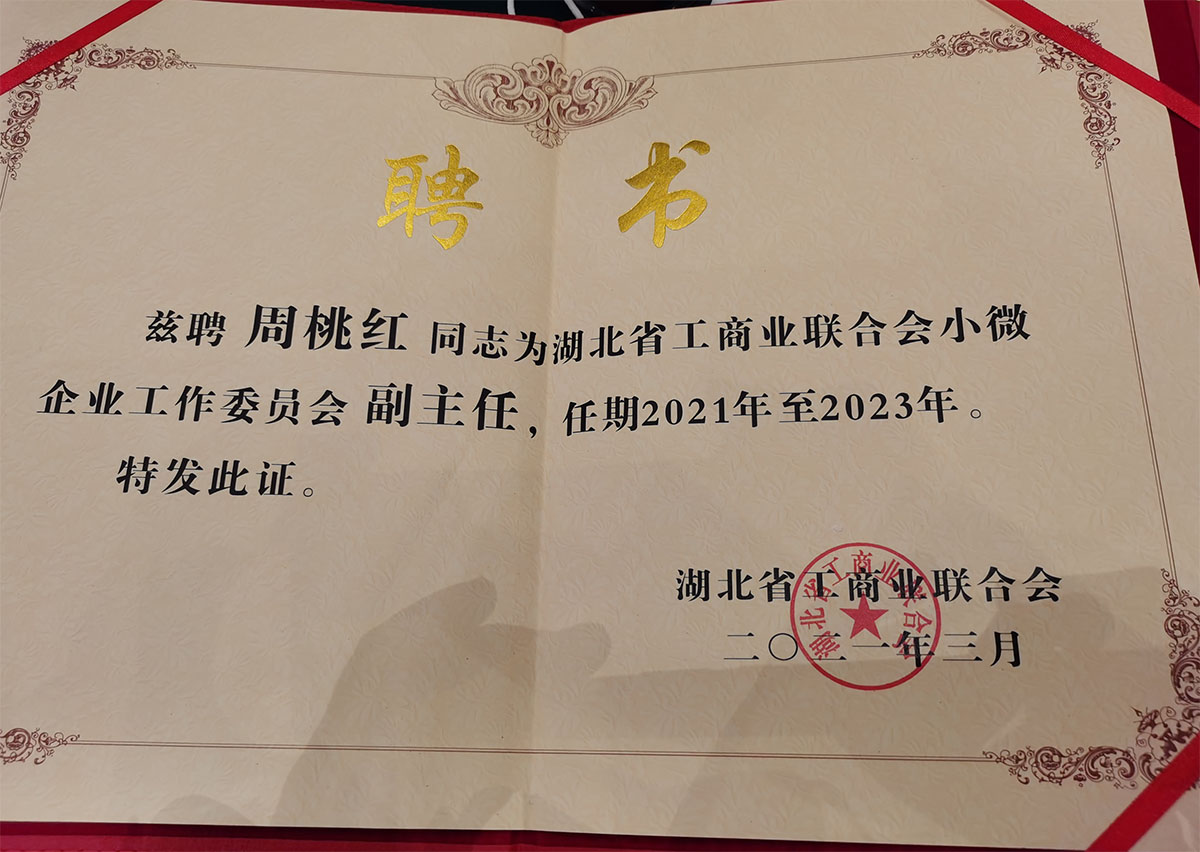 聘书
兹聘 周桃红 同志为湖北省工商业联合会小微
企业工作委员会 副主任，任期2021年至2023年。
特发此证。
湖北省工商业联合会
二〇二一年三月
湖北省工商业联合会